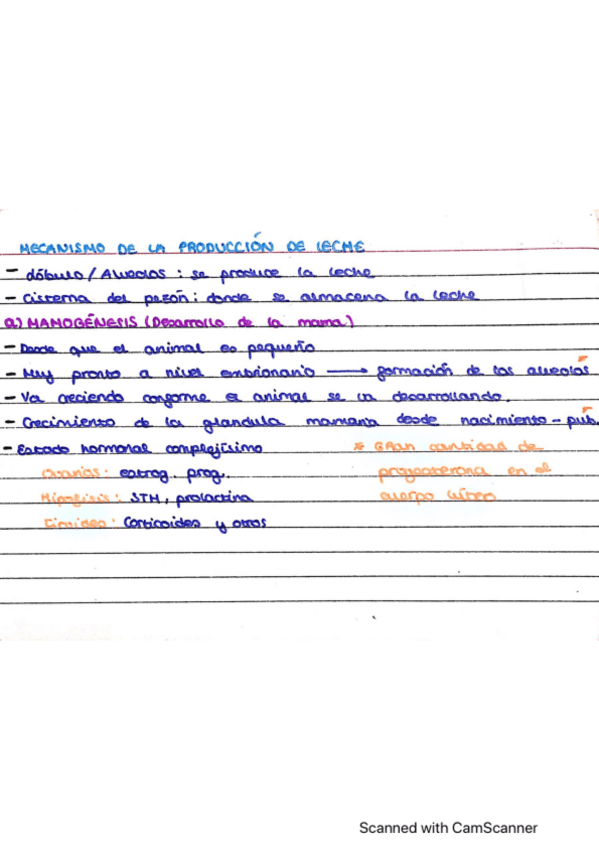 MECANISMO DE LA PRODUCCIÓN DE LECHE
- lóbulo / Alveolos : se produce la leche
- Cisterna del pezón : donde se almacena la leche
a) MAMOGÉNESIS (Desarrollo de la mama)
- Desde que el animal es pequeño
- Muy pronto a nivel embrionario → formación de los alveolos *
- Va creciendo conforme el animal se va desarrollando.
- Crecimiento de la glandula mamaria desde nacimiento - pub.
- Estado hormonal complejísimo
Ovarios : estrog. prog.
Hipófisis : STH, prolactina
Tiroides : Corticoides y otros
* GRan cantidad de
progesterona en el
cuerpo lúteo
Scanned with CamScanner